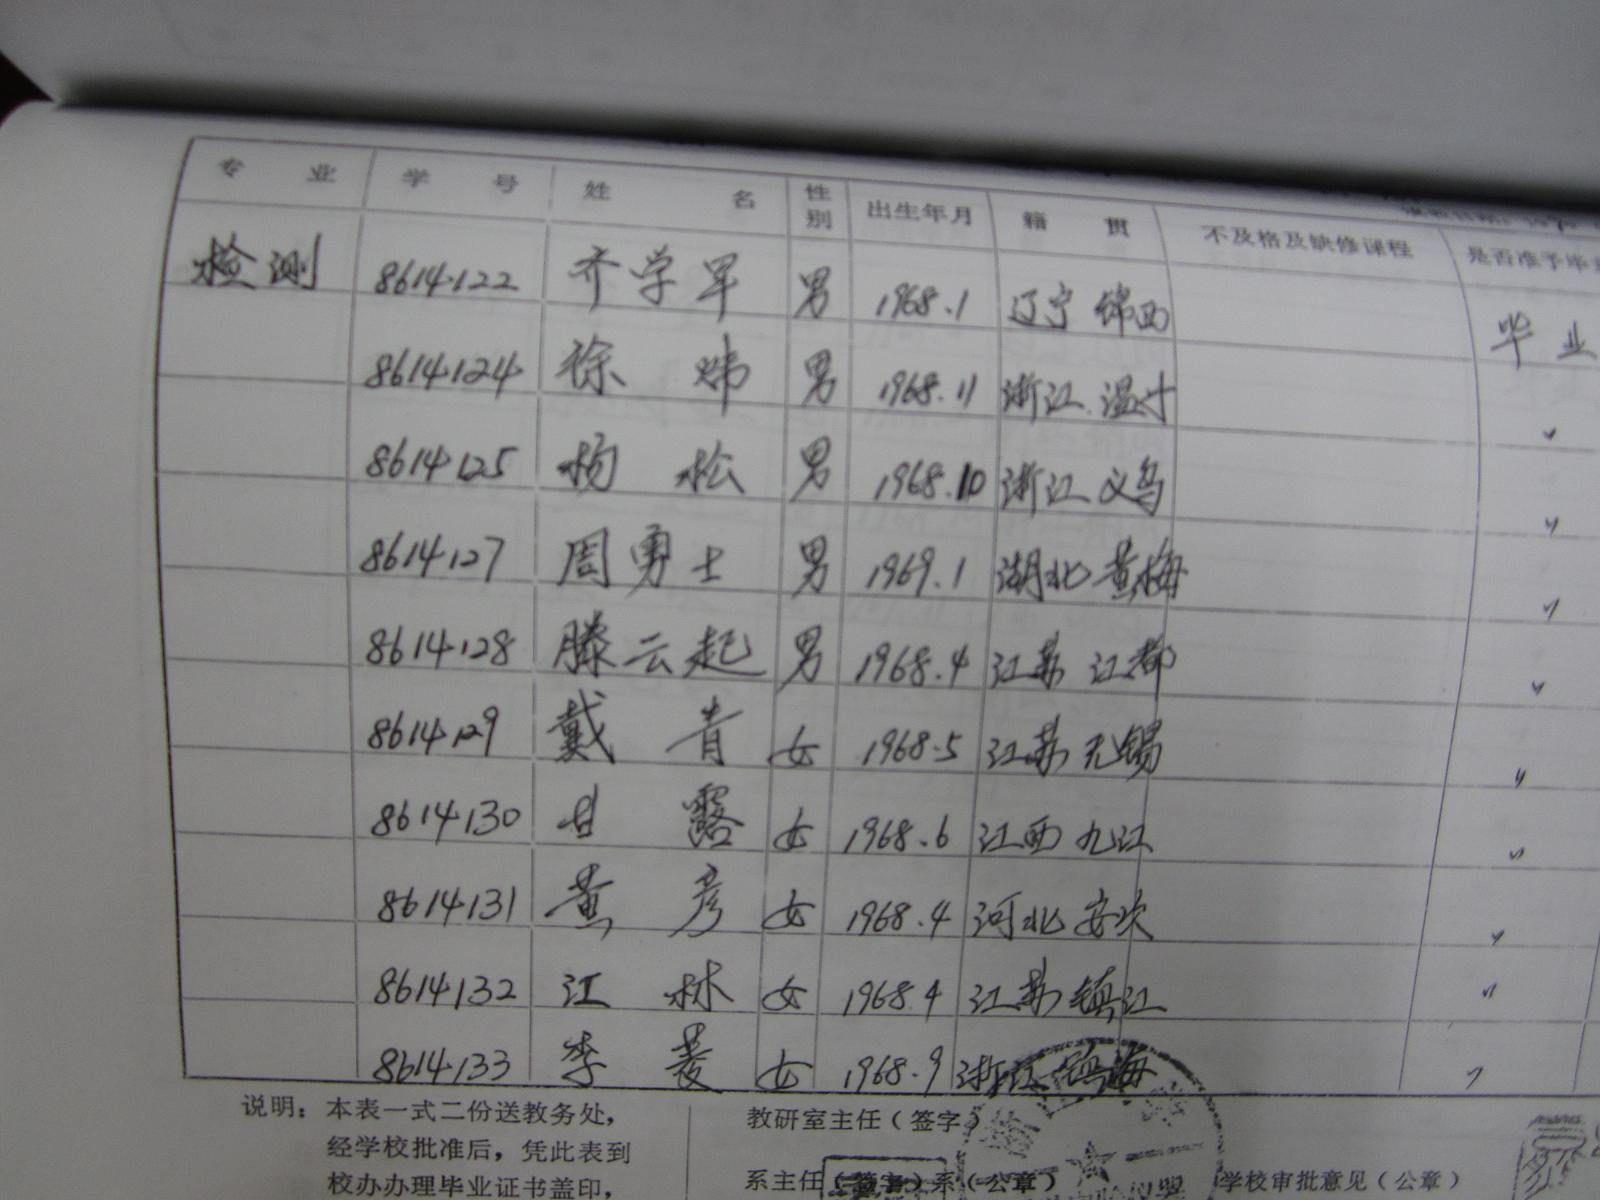 专 业 学 号 姓 名 性别 出生年月 籍 贯 不及格及缺修课程 是否准予毕
检测 8614122 齐学早 男 1968.1 辽宁 锦西 毕业
8614124 徐 炜 男 1968.11 浙江 温州 〃
8614125 杨 松 男 1968.10 浙江 义乌 〃
8614127 周勇士 男 1969.1 湖北 黄梅 〃
8614128 滕云起 男 1968.4 江苏 江都 〃
8614129 戴 青 女 1968.5 江苏 无锡 〃
8614130 甘 露 女 1968.6 江西 九江 〃
8614131 黄 彦 女 1968.4 河北 安次 〃
8614132 江 林 女 1968.4 江苏 镇江 〃
8614133 李 菱 女 1968.9 浙江 镇海 〃
说明：本表一式二份送教务处， 教研室主任（签字）
经学校批准后，凭此表到
校办办理毕业证书盖印， 系主任（签字）系（公章） 学校审批意见（公章）